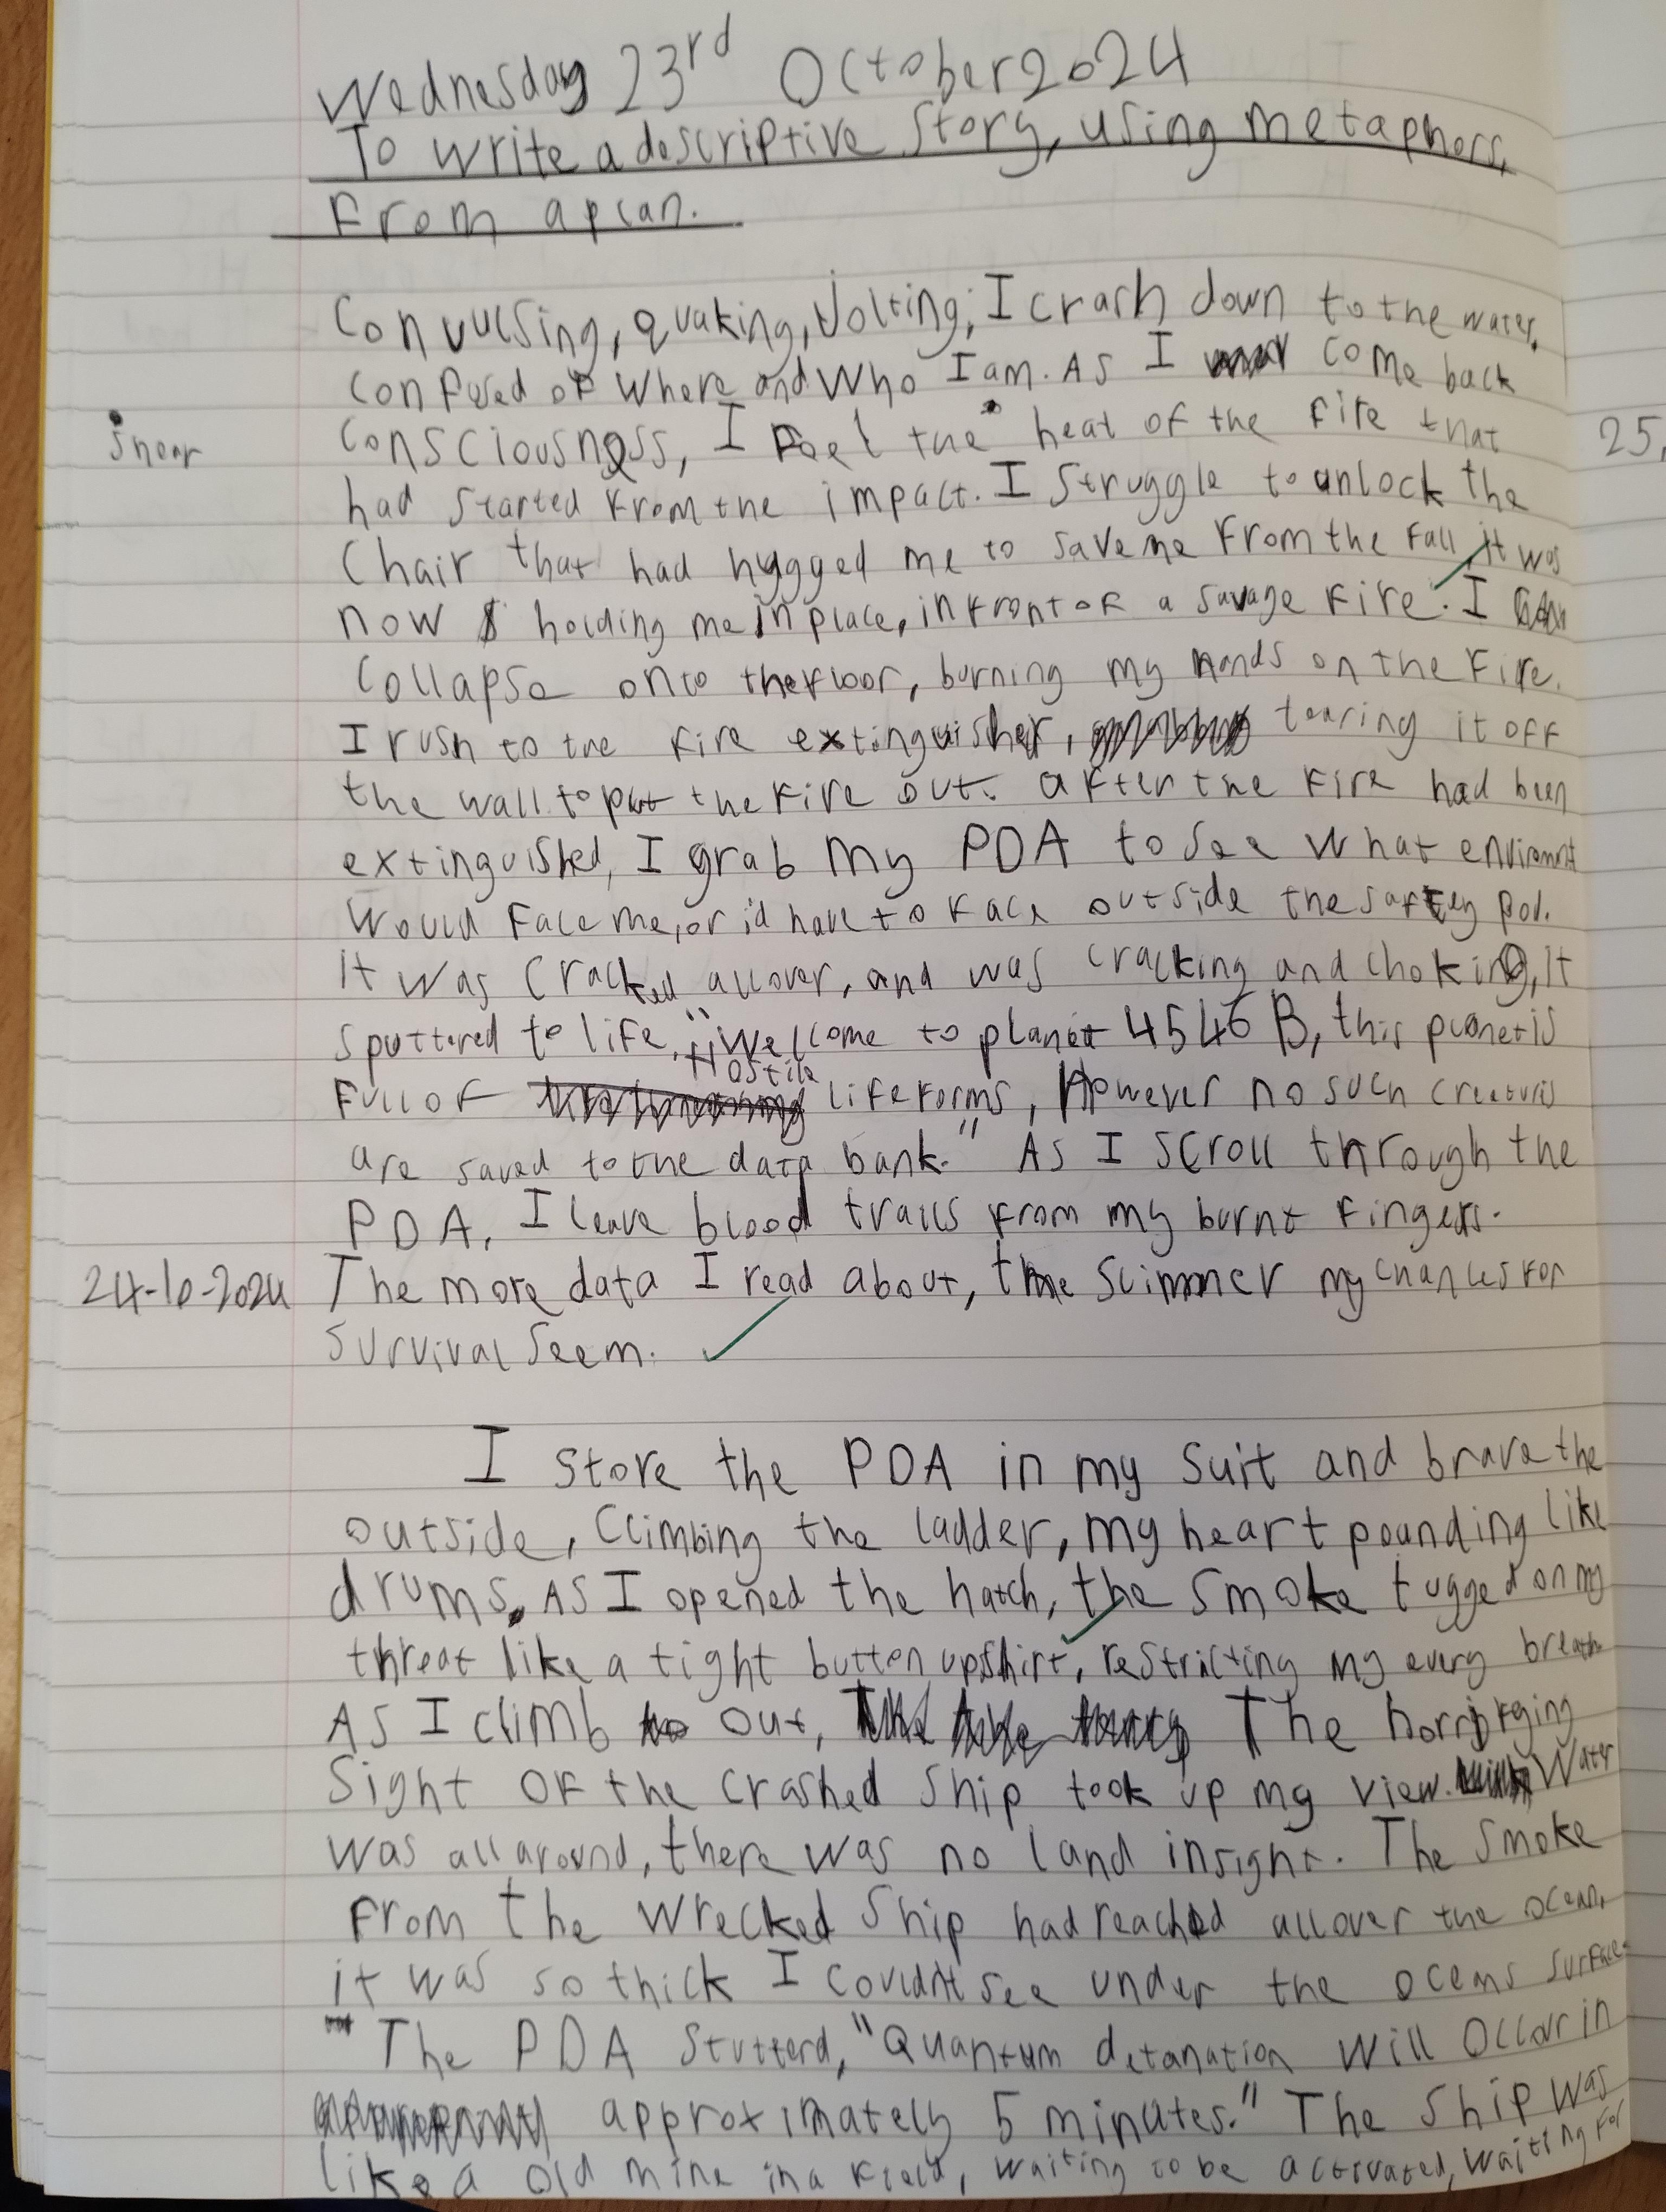 Wednesday 23rd October 2024
To write a descriptive story, using metaphors,
From a plan.
Convulsing, quaking, Jolting, I crash down to the water,
confused of where and who I am. As I come back
consciousness, I feel the heat of the fire that
had started from the impact. I struggle to unlock the
Chair that had hugged me to save me from the fall, it was
now holding me in place, in front of a savage fire. I
collapse onto the floor, burning my hands on the fire.
I rush to the fire extinguisher, tearing it off
the wall to put the fire out. after the fire had been
extinguished, I grab my PDA to see what enviroment
would face me, or i'd have to face outside the saftey pod.
It was cracked all over, and was cracking and choking, it
sputtered to life, "Welcome to planet 4546 B, this planet is
Full of Hostile lifeforms, However no such creatures
are saved to the data bank." As I scroll through the
PDA, I leave blood trails from my burnt fingers.
24-10-2024 The more data I read about, the slimmer my chances for
survival seem.
I store the PDA in my suit and brave the
outside, Climbing the ladder, my heart pounding like
drums. As I opened the hatch, the smoke tugged on my
threat like a tight button up shirt, restricting my every breath
As I climb out, The horrifging
Sight of the crashed ship took up my view. Water
was all around, there was no land insight. The smoke
from the wrecked ship had reached all over the ocean,
it was so thick I couldn't see under the oceans surface.
The PDA Stutterd, "Quantum detanation will Occour in
approximately 5 minutes." The ship was
like a old mine in a field, waiting to be activated, waiting for
25,